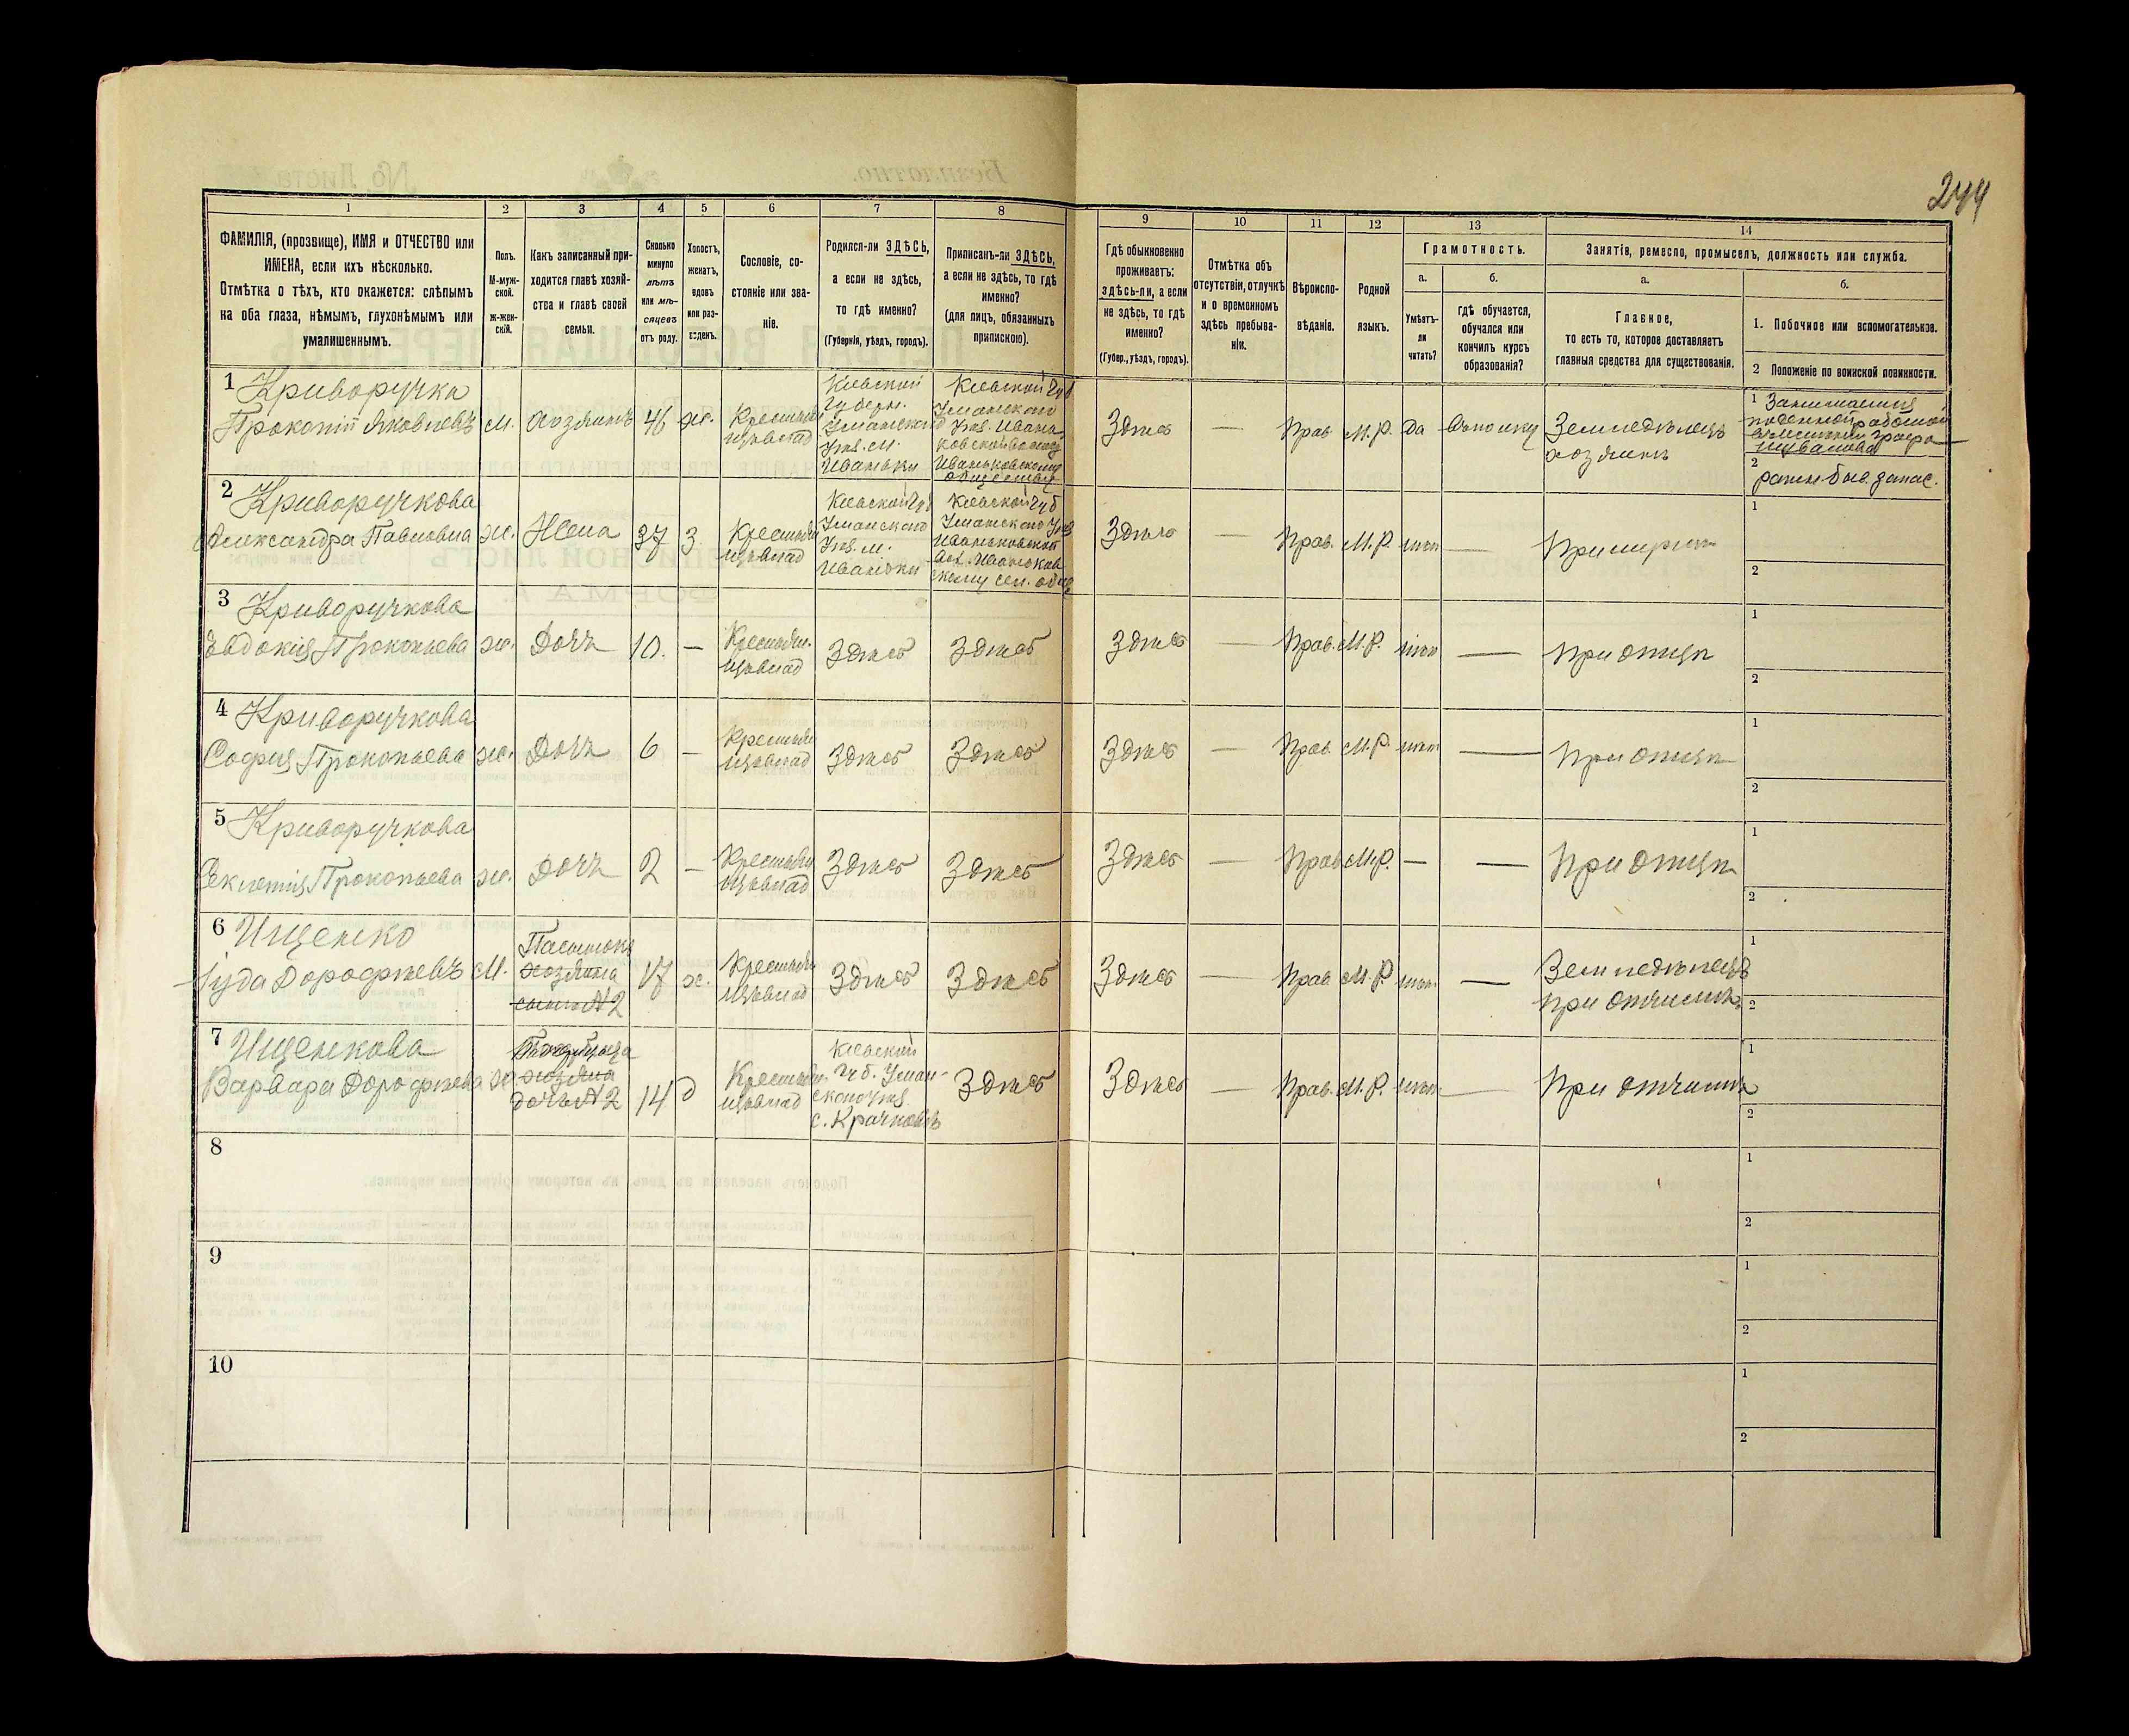 244
1
2
3
4
5
6
7
8
9
10
11
12
13
14
ФАМИЛІЯ, (прозвище), ИМЯ и ОТЧЕСТВО или
ИМЕНА, если ихъ нѣсколько.
Отмѣтка о тѣхъ, кто окажется: слѣпымъ
на оба глаза, нѣмымъ, глухонѣмымъ или
умалишеннымъ.
Полъ.
М-муж-
ской.
ж-жен-
скій.
Какъ записанный при-
ходится главѣ хозяй-
ства и главѣ своей
семьи.
Сколько
минуло
лѣтъ
или мѣ-
сяцевъ
отъ роду.
Холостъ,
женатъ,
вдовъ
или раз-
веденъ.
Сословіе, со-
стояніе или зва-
ніе.
Родился-ли ЗДѢСЬ,
а если не здѣсь,
то гдѣ именно?
(Губернія, уѣздъ, городъ).
Приписанъ-ли ЗДѢСЬ,
а если не здѣсь, то гдѣ
именно?
(для лицъ, обязанныхъ
припискою).
Гдѣ обыкновенно
проживаетъ:
здѣсь-ли, а если
не здѣсь, то гдѣ
именно?
(Губер., уѣздъ, городъ).
Отмѣтка объ
отсутствіи, отлучкѣ
и о временномъ
здѣсь пребыва-
ніи.
Вѣроиспо-
вѣданіе.
Родной
языкъ.
Грамотность.
а.
Умѣетъ-
ли
читать?
б.
гдѣ обучается,
обучался или
кончилъ курсъ
образованія?
Занятія, ремесло, промыселъ, должность или служба.
а.
Главное,
то есть то, которое доставляетъ
главныя средства для существованія.
б.
1. Побочное или вспомогательное.
2 Положеніе по воинской повинности.
1 Криворучка
Прокопій Яковлевъ
м.
хозяинъ
46
ж.
Крестьян
Кіевской
Губерн.
Уманскаго
Уѣз. м.
Иваньки
Кіевской Губ
Уманскаго
Уѣз. Ивань
Иваньковскому
обществу
Здѣсь
—
Прав
М.Р.
да
Земледѣлецъ
хозяинъ
1 Занимается
поденной работой
2
2 Криворучкова
Александра Павловна
ж.
Жена
37
З
Крестьян
Кіевской Губ
Уманскаго
Уѣз. м.
Иваньки
Кіевской Губ
Уманскаго Уѣз
Иваньковской
Вол. Иваньков
скому сел. общ
Здѣсь
—
Прав.
М.Р.
нѣт
—
При мужѣ
1
2
3 Криворучкова
Евдокія Прокопьева
ж.
Дочь
10.
—
Крестьян.
Здѣсь
Здѣсь
Здѣсь
—
Прав.
М.Р.
нѣт
—
При отцѣ
1
2
4 Криворучкова
Софія Прокопьева
ж.
Дочь
6
—
Крестьян
Здѣсь
Здѣсь
Здѣсь
—
Прав
М.Р.
нѣт
—
При отцѣ
1
2
5 Криворучкова
Прокопьева
ж.
Дочь
2
—
Крестьян
Здѣсь
Здѣсь
Здѣсь
—
Прав
М.Р.
—
—
При отцѣ
1
2
6 Ищенко
Іуда Дорофѣевъ
М.
Пасынокъ
хозяина
сынъ №2
17
х.
Крестьян
Здѣсь
Здѣсь
Здѣсь
—
Прав
М.Р
нѣт.
—
Земледѣлецъ
при отчимѣ
1
2
7 Ищенкова
Варвара Дорофѣева
ж
хозяина
дочь №2
14
д
Крестьян
Кіевской
Губ. Уман-
скаго уѣз
Здѣсь
Здѣсь
—
Прав.
М.Р.
нѣт
—
При отчимѣ
1
2
8
1
2
9
1
2
10
1
2